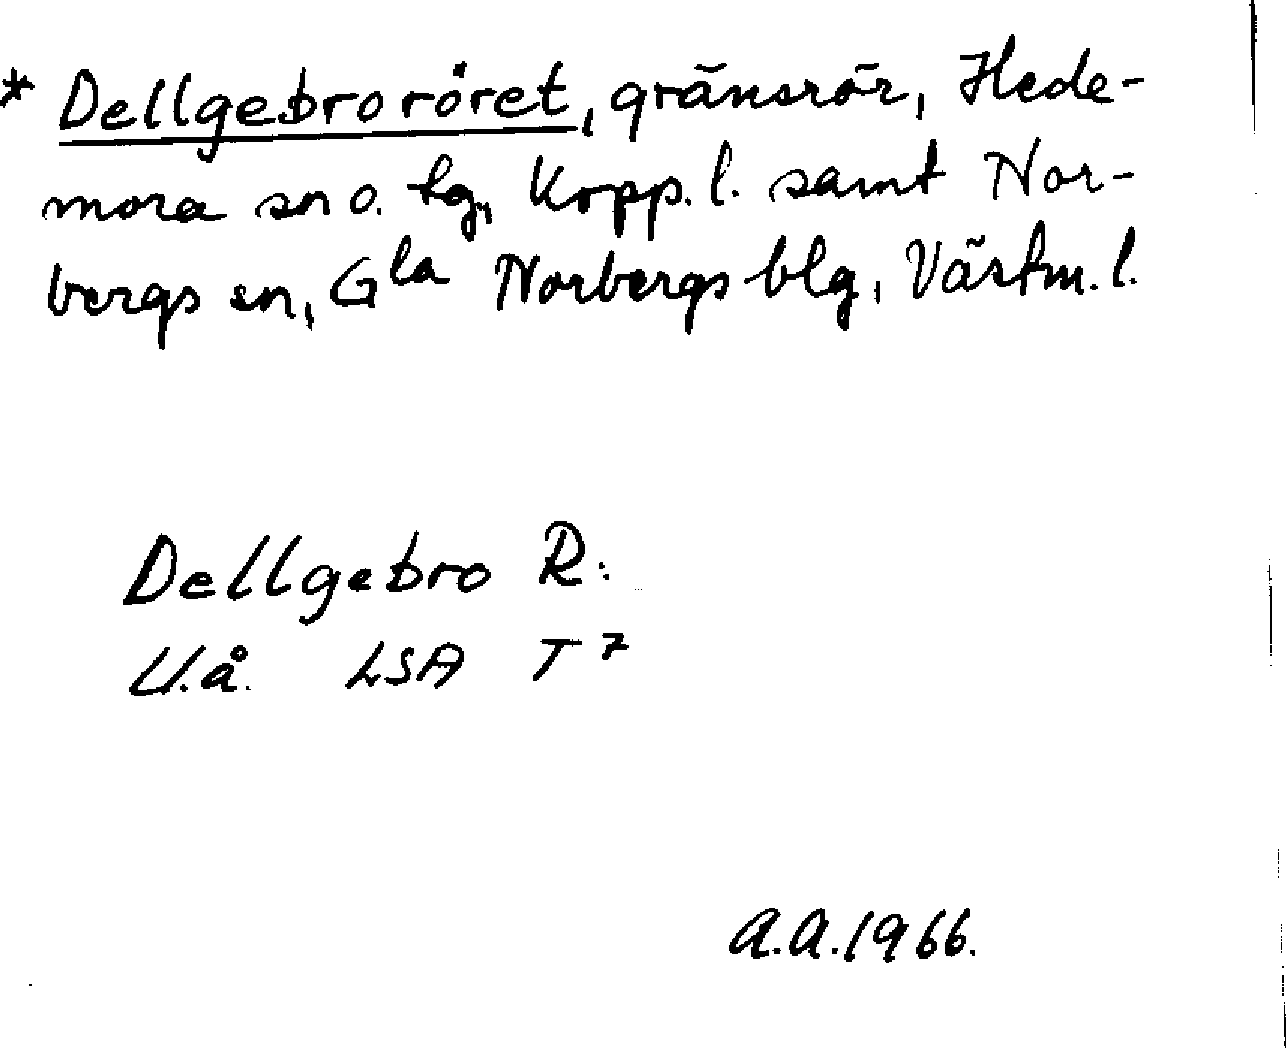 * Dellgebroröret, gränsrör, Hede-
mora sn o. tg, Kopp. l. samt Nor-
bergs sn, Gla Norbergs blg, Västm. l.
Dellgebro R:
U.å. LSA T 7
A.A. 1966.